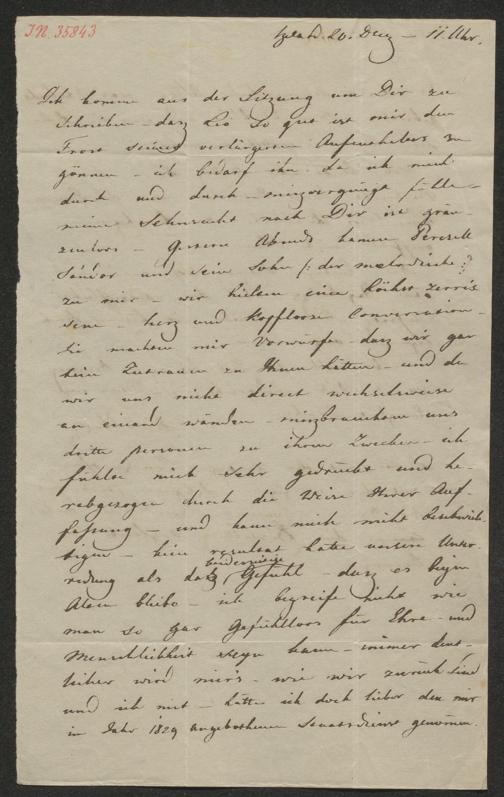 I.N. 35843
20. Dez – 11. Uhr.
Ich komme aus der Sitzung um Dir zu
schreiben – dasz so gut ist mir den
Trost seines verlängerten Aufenthaltes zu
gönnen – ich bedarf ihn da ich mich
durch und durch – miszvergnügt fühle –
meine Sehnsucht nach Dir ist grän-
zenloos – Gestern Abends kamen Perczell
Sándor und sein Sohn /: der melodische :/
zu mir – wir hielten eine höchst zerris
sene – herz und kopfloose Conversation –
Sie machten mir Vorwürfe dasz wir gar
kein Zutrauen zu Ihnen hätten – und da
wir uns nicht direct wechselweise
an einand wänden – miszbrauchten uns
dritte personen zu ihren Zwecken – ich
fühlte mich sehr gedrückt und he-
rabgezogen durch die Weise Ihrer Auf-
fassung – und kann mich nicht beschwich
tigen – kein resultat hatte unsere Unter-
redung als das beiderseitige Gefühl – dasz es beym
Alten bliebe – ich begreife nicht wie
man so gar gefühlloos für Ehre – und
Menschlichkeit seyn kann – immer deut-
licher wird mir's – wie wir zurück sind
und ich mit – hätte ich doch lieber den mir
im Jahr 1829 angebothenen Staatsdienst genommen.